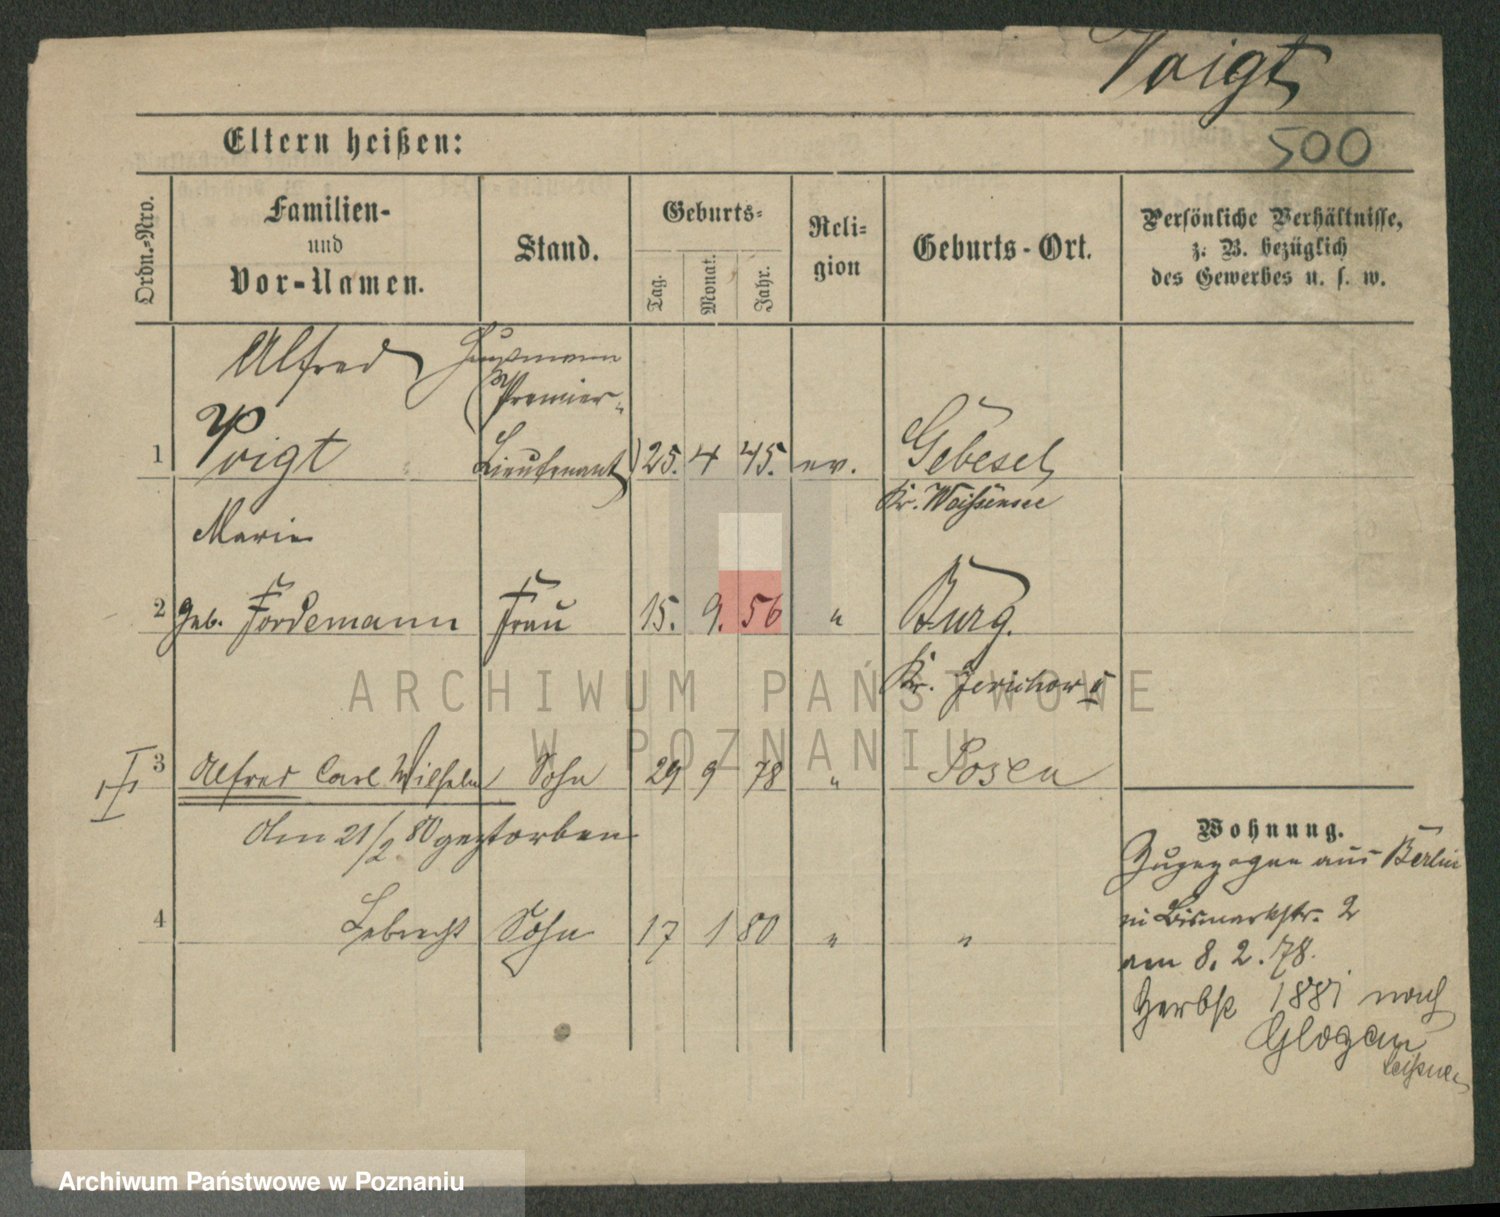 Voigt
500
Eltern heißen:
Ordn.-Nro.
Familien-
und
Vor-Namen.
Stand.
Geburts-
Tag.
Monat.
Jahr.
Reli-
gion
Geburts-Ort.
Persönliche Verhältnisse,
z. B. bezüglich
des Gewerbes u. s. w.
Alfred Hauptmann
(Premier-
1 Voigt Lieutenant) 25. 4 45. ev. Gebesel
Kr. Weißensee
Marie
2 geb. Fordemann Frau 15. 9. 56 " Burg.
Kr. Jerichow I
3 Alfred Carl Wilhelm Sohn 29 9 78 " Posen
am 21/2 80 gestorben
4 Lebrecht Sohn 17 1 80 " "
Wohnung.
Zugezogen aus Berlin
in Bismarkstr. 2
am 8. 2. 78.
Herbst 1881 nach
Glogau
ARCHIWUM PAŃSTWOWE
W POZNANIU
Archiwum Państwowe w Poznaniu